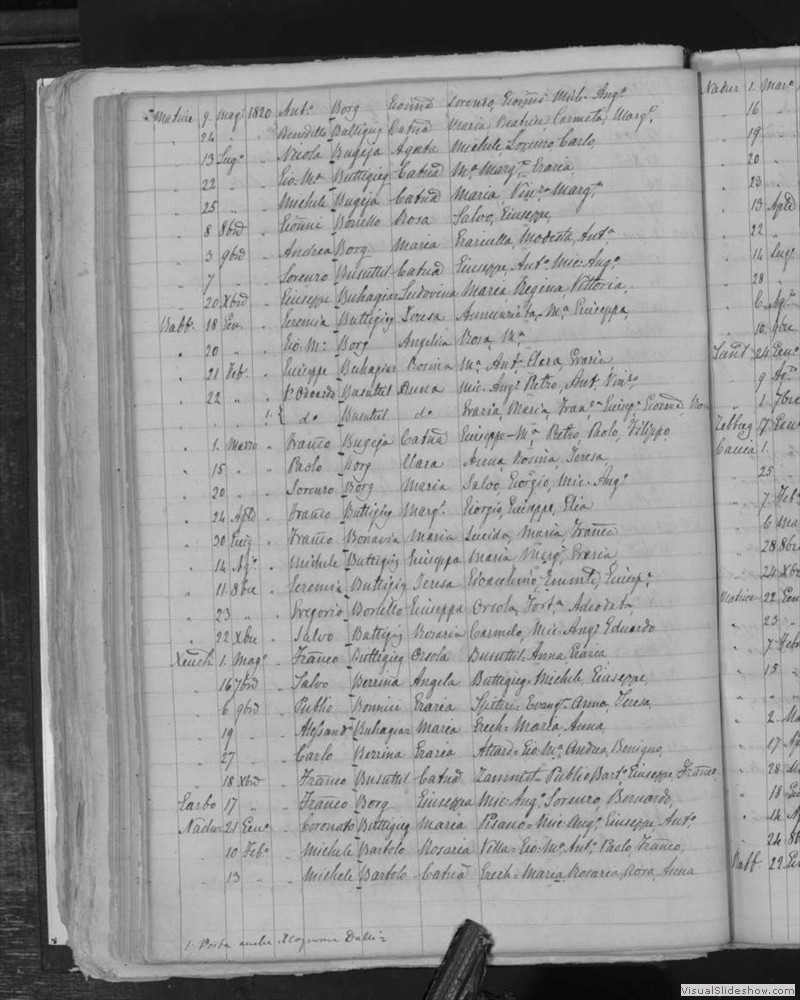 Matrice 9 Mag° 1820 Ant° Borg Gioñna Lorenzo, Gioñni Mich-Ang°
24 " " Benedetto Buttigieg Catña Maria Beatrice, Carmela, Marg°,
13 Lug° " Nicola Bugeja Agata Michele, Lorenzo Carlo,
22 " " Gio. M.ª Buttigieg Catña M.ª Marg.ª Grazia,
25 " " Michele Bugeja Catña Maria, Vinz.ª Marg.ª
8 8bre " Gioñni Borello Rosa Salvo, Giuseppe,
3 9bre " Andrea Borg Maria Graziella, Modesta, Ant.ª
7 " Lorenzo Busuttil Catña Giuseppe, Ant.° Mic-Ang.°
20 Xbre " Giuseppe Buhagiar Ludovina Maria Regina, Vittoria,
Rabb. 18 Gen. " Geremia Buttigieg Teresa Annunziata-M.ª Giuseppa,
20 " " Gio. M.ª Borg Angelia Rosa M.ª
21 Feb. " Giuseppe Buhagiar Rosina M.ª Ant. Clara, Grazia
22 " " Busuttil Anna Mic-Ang.° Pietro, Ant. Vinz.°
1. { do Busuttil do Grazia, Maria, Fran.ª Giusep.ª Gioñna,
1. Marzo " Franco Bugeja Catña Giuseppe-M.ª Pietro, Paolo, Filippo
15 " " Paolo Borg Clara Anna Rosina, Teresa
20 " " Lorenzo Borg Maria Salvo, Giorgio, Mic-Ang.°
24 Aple " Franco Buttigieg Marg.ª Giorgio, Giuseppe, Elia
30 Giug. " Franco Bonavia Maria Lucida, Maria, Franca
14 Ag.° " Michele Buttigieg Giuseppa Maria Marg.ª, Grazia
11 8bre " Geremia Buttigieg Teresa Giusep.ª
23 " " Gregorio Borello Giuseppa Orsola, Fort.ª Adeodata
22 Xbre " Salvo Buttigieg Rosaria Carmelo, Mic-Ang.° Eduardo
Xeuch. 1. Mag.° " Franco Buttigieg Orsola Busuttil-Anna, Grazia
16 7bre " Salvo Berrina Angela Buttigieg-Michele, Giuseppe,
6 9bre " Publio Bonnici Grazia Spiteri-Evang.ª Anna, Teresa,
19 " " Alessand. Buhagiar Maria Grech-Maria Anna,
27 " Carlo Berrina Grazia Attard-Gio. M.ª Andrea, Benigno,
18 Xbre " Franco Busuttil Catña Zammit-Publio Bart.° Giuseppe, Franco,
Garbo 17 " " Franco Borg Giuseppa Mic-Ang.° Lorenzo, Bernardo,
Nadur 21 Gen.° " Coronato Buttigieg Maria Pisano-Mic-Ang.°, Giuseppe, Ant.°
10 Feb.° " Michele Bartolo Rosaria Villa-Gio. M.ª Ant.° Paolo, Franco,
13 " " Michele Bartolo Catña Grech-Maria, Rosaria, Rosa, Anna
1. Porta anche il cognome
Nadur 1. Mar.°
16
19
20
23
13 Aple
22
14 Lug.°
28
6 Ag.°
10 9bre
Sanl. 24 Gen.°
9 Ag.°
1 7bre
Zebbug 17 Gen.
Caccia 1.
25
7 Feb.°
6
28 8bre
24 Xbre
Matrice 22 Gen.
23
7 Febr.
15
2
17
28
18
14
24
Rabb. 22
VisualSlideshow.com